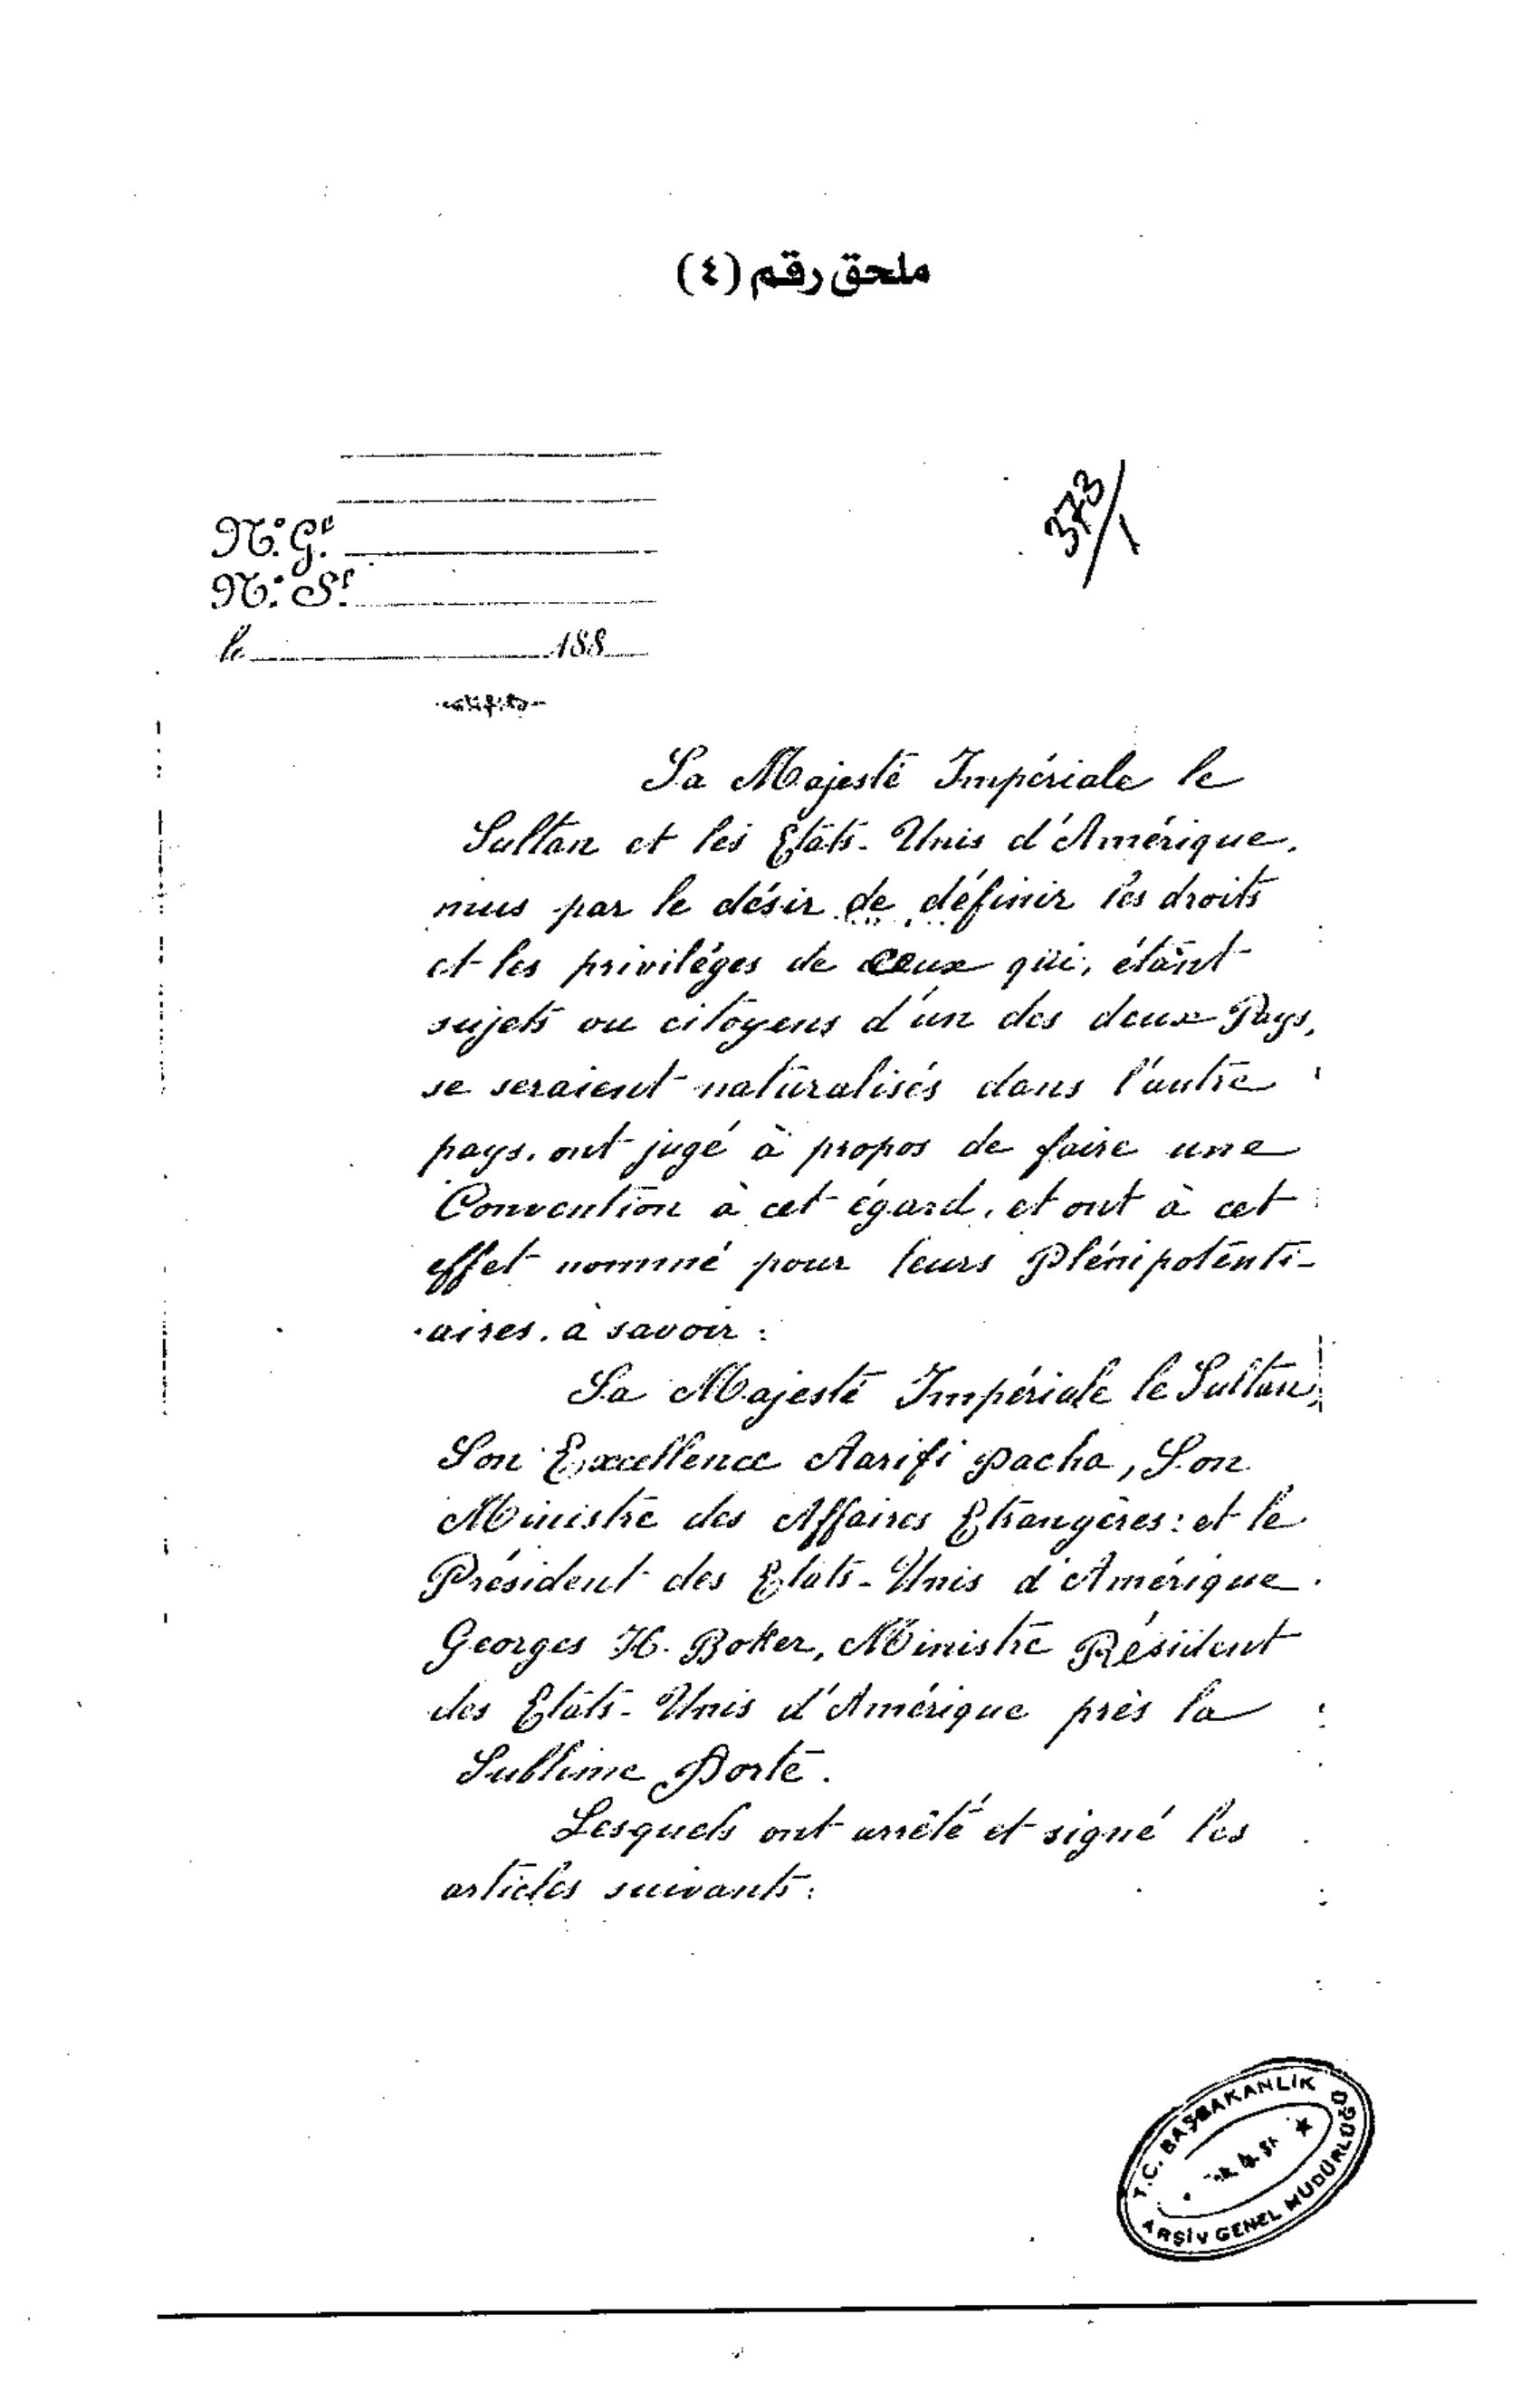 ملحق رقم (٤)
373/1
N.º G.el
N.º S.l
le 188
Sa Majesté Impériale le
Sultan et les Etats-Unis d'Amérique,
mus par le désir de définir les droits
et les priviléges de ceux qui, étant
sujets ou citoyens d'un des deux Pays,
se seraient naturalisés dans l'autre
pays, ont jugé à propos de faire une
Convention à cet égard, et ont à cet
effet nommé pour leurs Plénipotenti-
aires, à savoir :
Sa Majesté Impériale le Sultan,
Son Excellence Aarifi Pacha, Son
Ministre des Affaires Etrangères ; et le
Président des Etats-Unis d'Amérique.
Georges H. Boker, Ministre Résident
des Etats-Unis d'Amérique près la
Sublime Porte.
Lesquels ont arrêté et signé les
articles suivants :
T.C. BAŞBAKANLIK
ARŞİV GENEL MÜDÜRLÜĞÜ